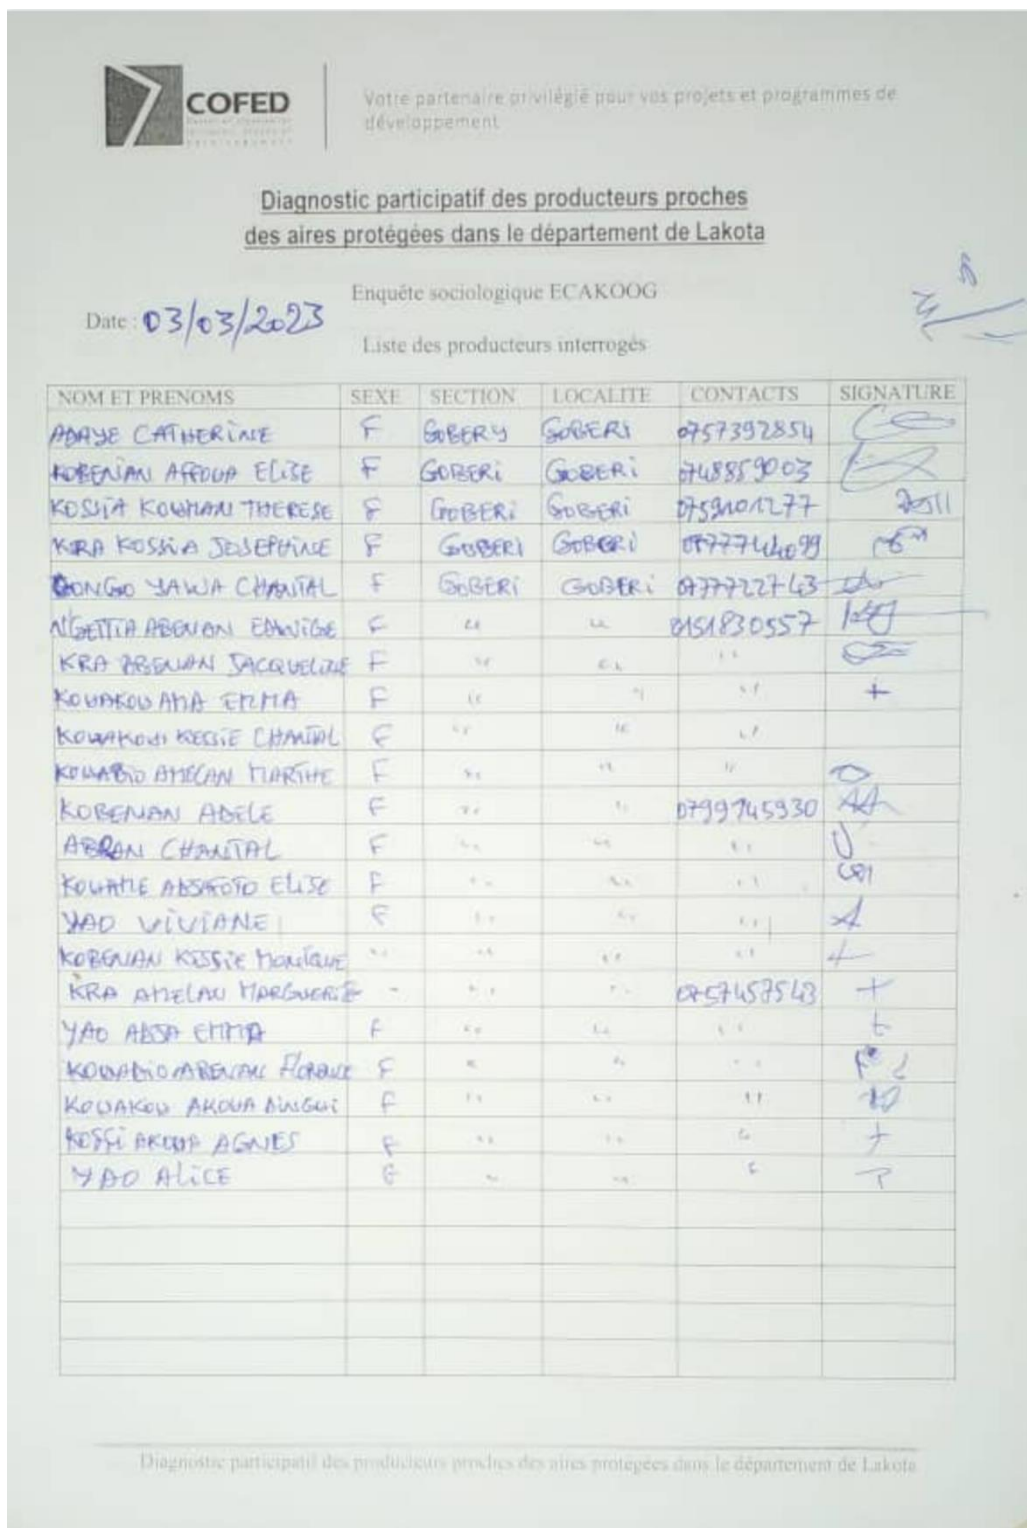 COFED
Votre partenaire privilégié pour vos projets et programmes de
développement
Diagnostic participatif des producteurs proches
des aires protégées dans le département de Lakota
Enquête sociologique ECAKOOG
Date : 03/03/2023
Liste des producteurs interrogés
NOM ET PRENOMS SEXE SECTION LOCALITE CONTACTS SIGNATURE
ADAYE CATHERINE F GOBERY GOBERI 0757392854
KOBENAN AFFOUA ELISE F GOBERi GOBERi 0748859003
KOSSIA KOUMAN THERESE F GOBERi GOBERi 0759101277
KRA KOSSIA JOSEPHINE F GOBERI GOBERI
DONGO YAWA CHANTAL F GOBERI GOBERi 0777722743
NGETTIA ABENAN EDWIGE F " " 0151830557
KRA ABENAN JACQUELINE F " " "
KOUAKOU AMA EMMA F " " " +
KOUAKOU KESSIE CHANTAL F " " "
KOUADIO AMELAN MARTHE F " " "
KOBENAN ADELE F " " 0799745930
ABRAN CHANTAL F " " "
KOUAME ELISE F " " "
YAO VIVIANE F " " "
KOBENAN KESSIE MONIQUE " " " "
KRA AMELAN MARGUERITE - " " 0757457543 +
YAO ABSA EMMA F " " "
KOUADIO ABENAN F " " "
KOUAKOU AKOUA F " " "
KOSSI AKOUA AGNES F " " " +
YAO ALICE " " "
Diagnostic participatif des producteurs proches des aires protégées dans le département de Lakota